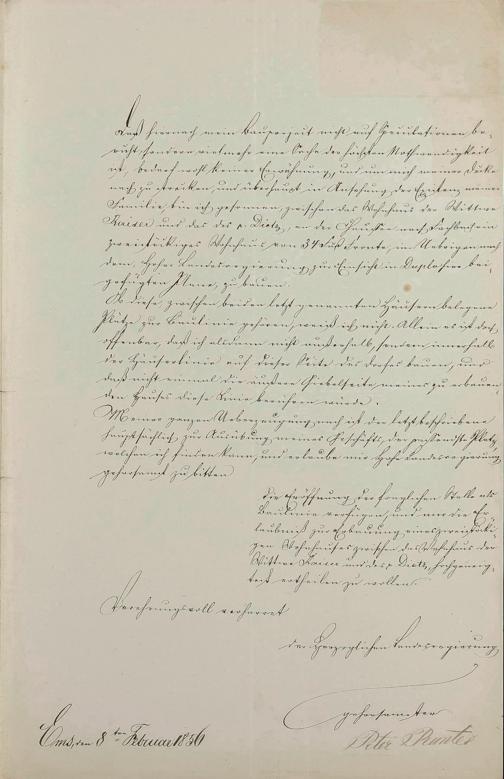 Daß hiernach mein Bauprojekt nicht auf Speculationen be,
ruht, sondern vielmehr eine Sache der höchsten Nothwendigkeit
ist, bedarf wohl keiner Erwähnung, und um mich meiner Decke
nach zu strecken, und überhaupt in Ansehung der Existenz meiner
Familie, bin ich gesonnen, zwischen das Wohnhaus der Wittwe
Kaiser und das des p. Dietz, an der Chaussee nach Fachbach ein
zweistöckiges Wohnhaus von 34 Fuß Fronte, im Uebrigen nach
dem, Hoher Landesregierung, zur Einsicht in Duplo hier bei,
gefügten Plane, zu bauen.
Ob diese, zwischen beiden letzt genannten Häusern belegene
Plätze zur Baulinie gehören, weiß ich nicht. Allein es ist doch
offenbar, daß ich alsdann nicht außerhalb, sondern innerhalb
der Häuserlinie auf dieser Seite des Dorfes bauen, und
daß nicht einmal die äußere Giebelseite meines zu erbauen,
den Hauses diese Linie berühren würde.
Meiner ganzen Ueberzeugung nach ist der letzt beschriebene
hauptsächlich zur Ausübung meines Geschäfts, der passendste Platz,
welchen ich finden kann, und erlaube mir Hohe Landesregierung
gehorsamst zu bitten
die Eröffnung der fraglichen Stelle als
Baulinie verfügen, und mir die Er,
laubniß zur Erbauung eines zweistöcki,
gen Wohnhauses zwischen das Wohnhaus der
Wittwe Kaiser und des p. Dietz, hochgeneig,
test ertheilen zu wollen.
Verehrungsvoll verharret
der Herzoglichen Landesregierung
gehorsamster
Ems, den 8ten Februar 1836
Peter